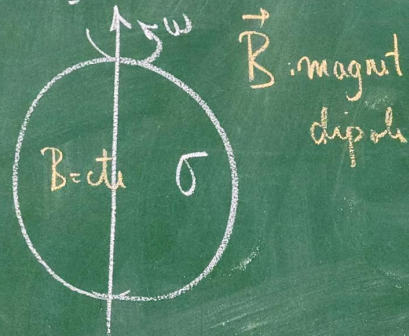 ω
B⃗: magnet
dipole
B=cte
σ